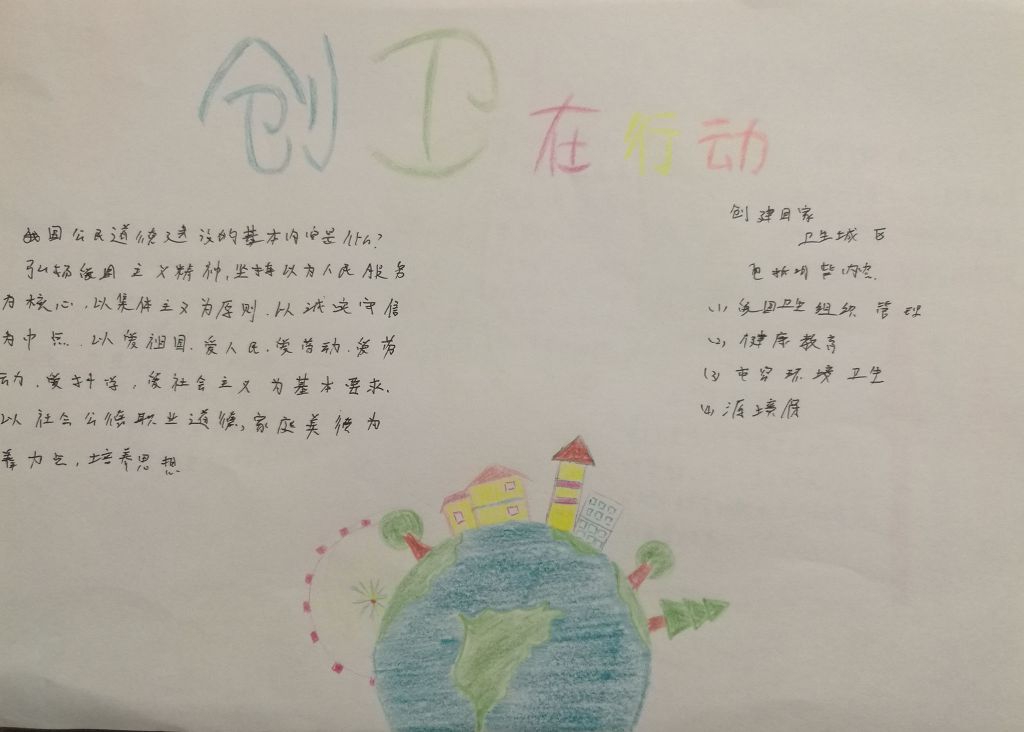 创卫在行动
我国公民道德建设的基本内容是什么?
弘扬爱国主义精神,坚持以为人民服务
为核心.以集体主义为原则.以诚实守信
为中点.以爱祖国.爱人民.爱劳动.爱劳
动.爱科学,爱社会主义为基本要求.
以社会公德职业道德,家庭美德为
着力点,培养思想
创建国家
卫生城区
包括哪些内容.
(1)爱国卫生组织管理
(2)健康教育
(3)市容环境卫生
(4)源境保